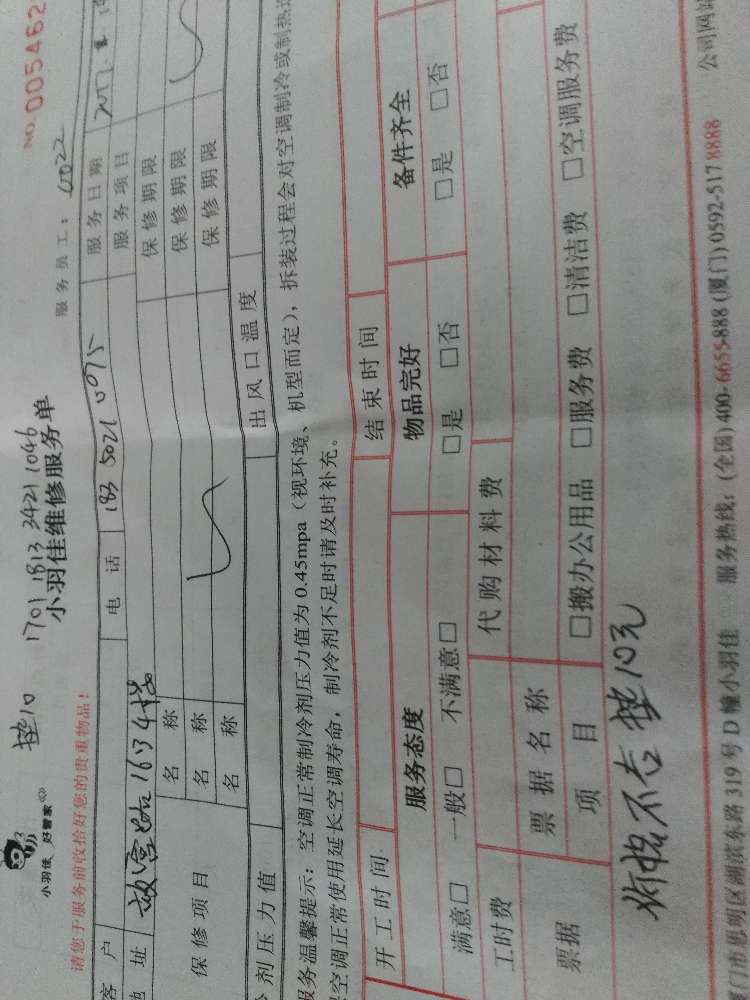 垫10 1701 1813 3421 1046
小羽佳 好管家
小羽佳维修服务单
NO. 005462
请您于服务前收拾好您的贵重物品!
服务员工:
客户 电话 183 5021 0095 服务日期
地址 故宫路1634楼 服务项目
保修项目 名称 保修期限
名称 保修期限
名称 保修期限
冷剂压力值 出风口温度
服务温馨提示:空调正常制冷剂压力值为0.45mpa(视环境、机型而定),拆装过程会对空调制冷或制热
空调正常使用延长空调寿命,制冷剂不足时请及时补充。
开工时间 结束时间
服务态度 物品完好 备件齐全
满意□ 一般□ 不满意□ □是 □否 □是 □否
工时费 代购材料费
票据 票据名称
项目 □搬办公用品 □服务费 □清洁费 □空调服务费
价格不含垫10元
厦门市思明区湖滨东路319号D幢小羽佳 服务热线:(全国)400-6655-888 (厦门)0592-517 8888 公司网站